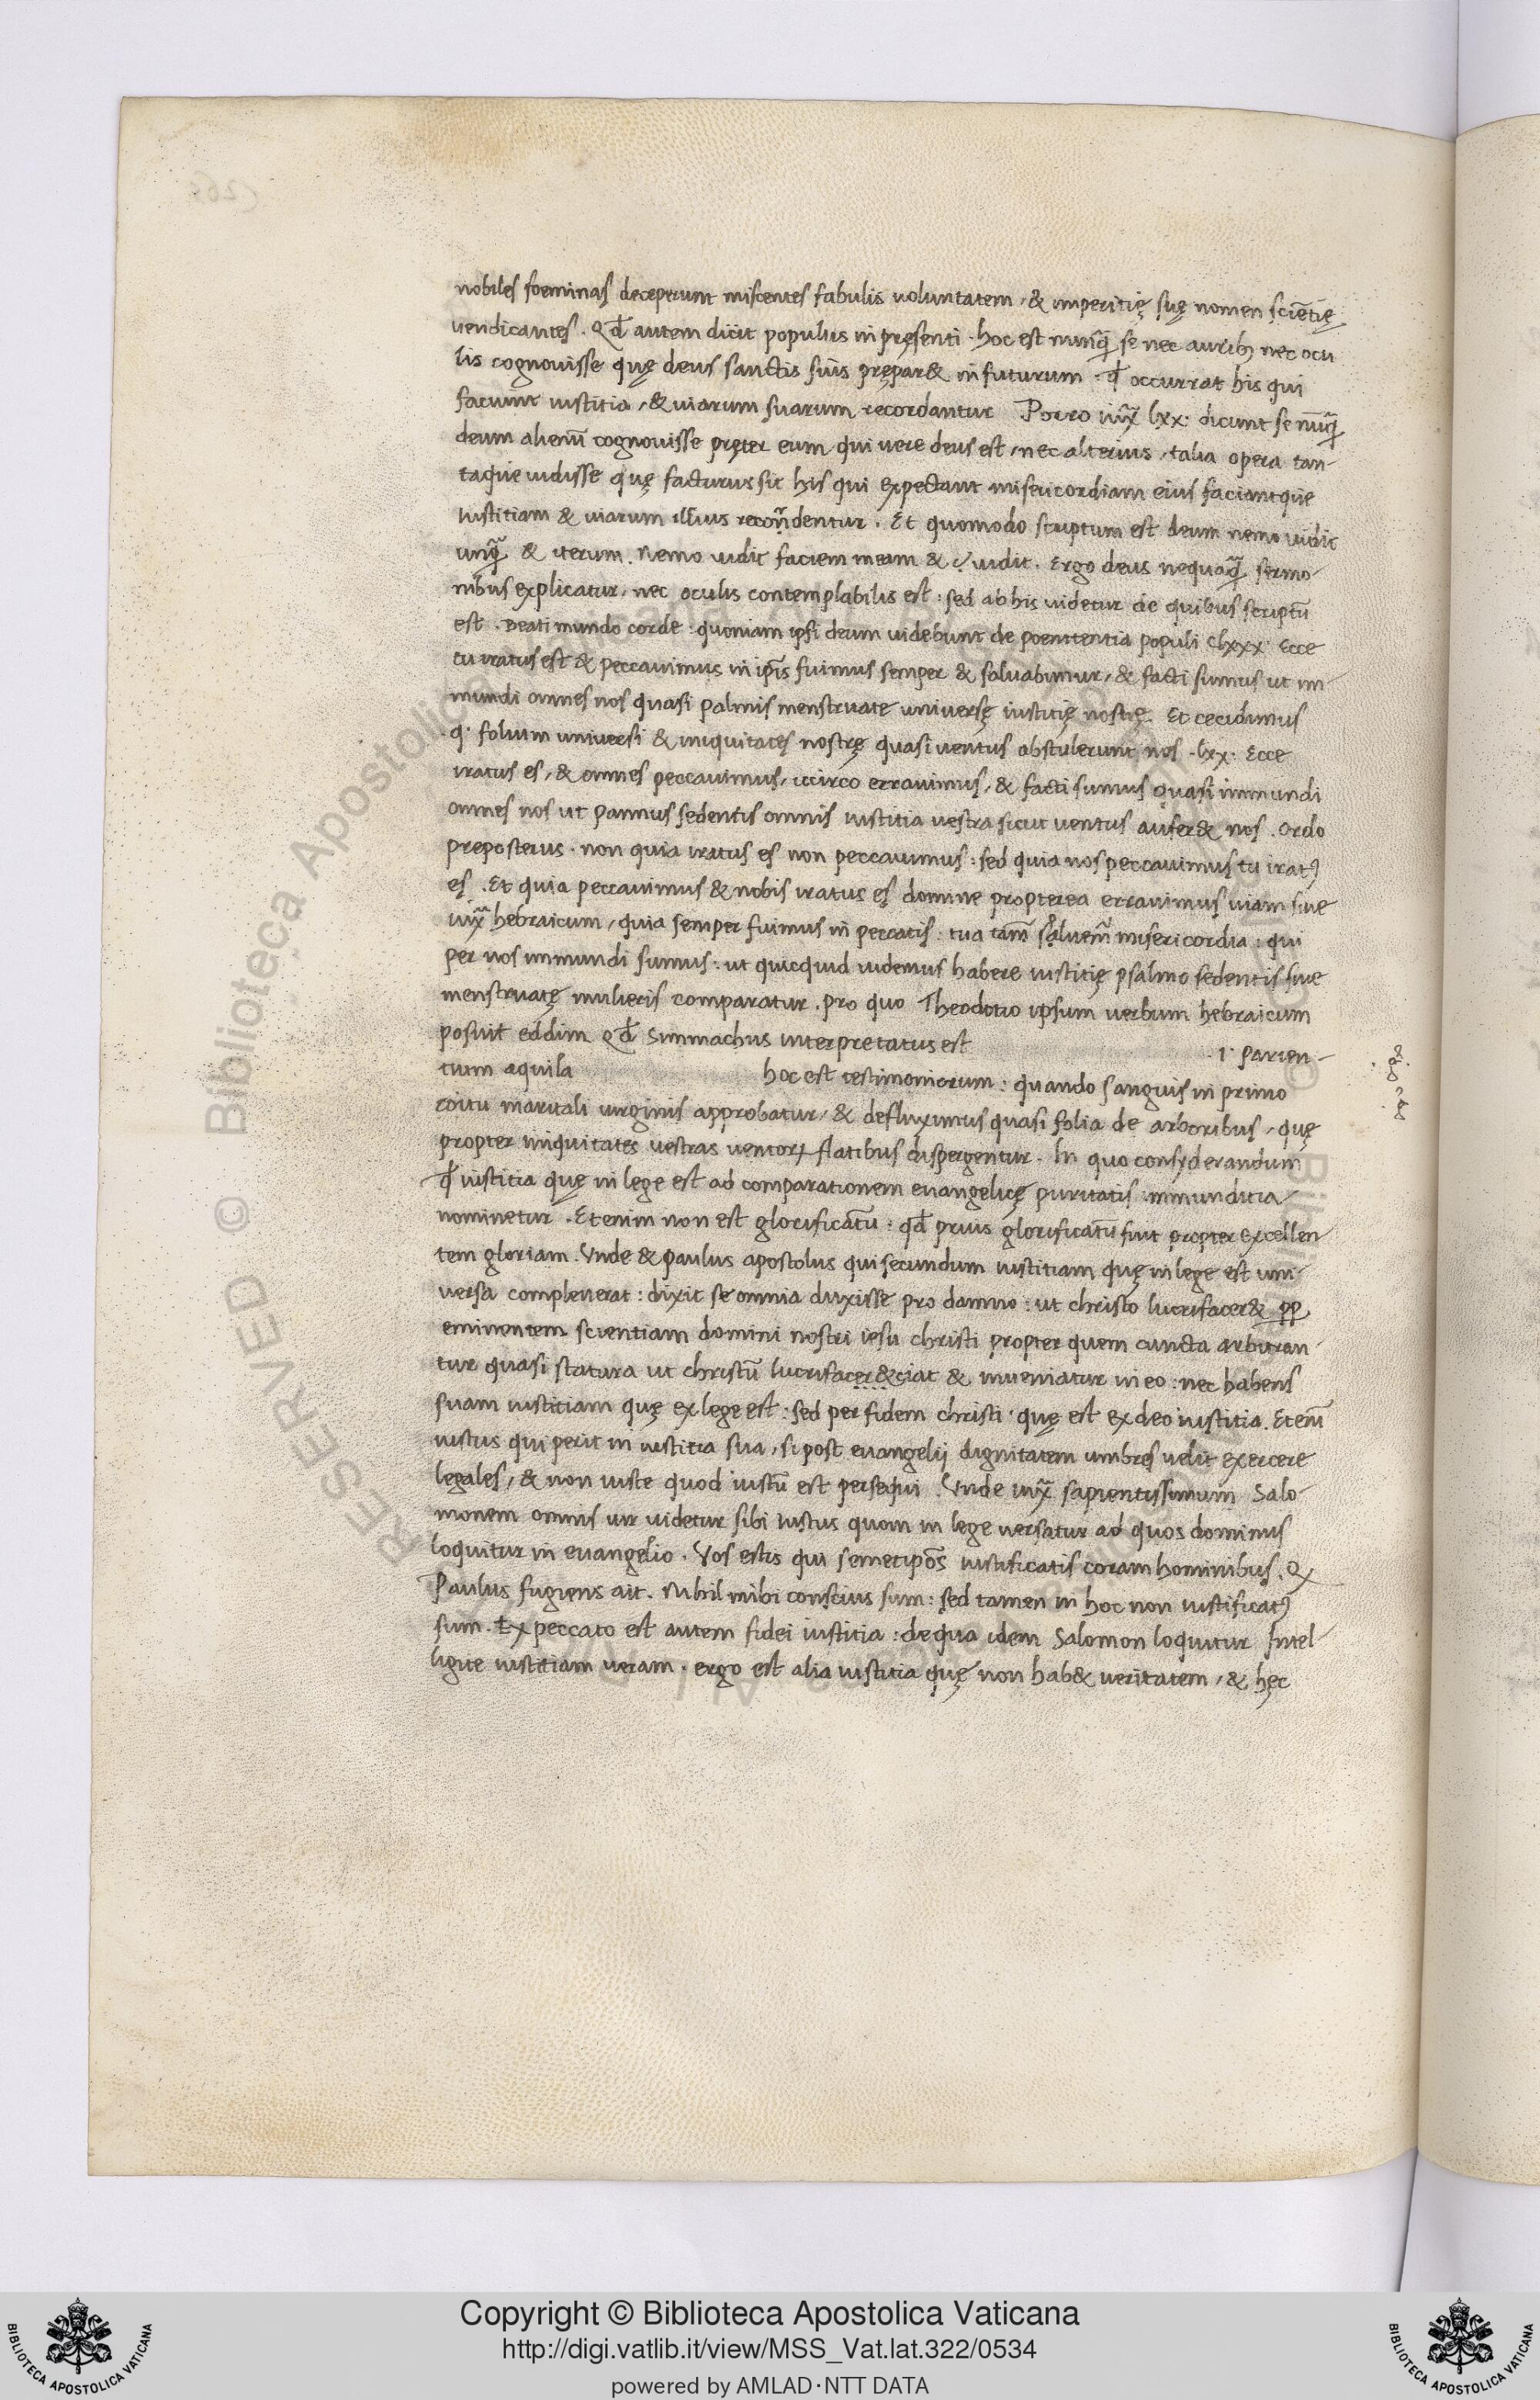 nobiles foeminas deceperunt miscentes fabulis voluntatem, & imperitię suę nomen sciētię
vendicantes. Qđ autem dicit populus in pręsenti. hoc est nunꝗ̃ se nec auribꝫ nec ocu
lis cognovisse quę deus sanctis suis prępar& in futurum. ꝙ occurrat his qui
faciunt iustitia, & viarum suarum recordantur Porro iuxͣ lxx. dicunt se nūꝗ̃
deum alienū cognovisse pręter eum qui vere deus est, nec alterius, talia opera tan-
taque vidisse quę facturus sit his qui expectant misericordiam eius faciantque
iustitiam & viarum illius recoñdentur. Et quomodo scriptum est deum nemo vidit
unꝗ̃ & iterum. Nemo vidit faciem meam & vidit. Ergo deus nequaꝗ̃ sermo-
nibus explicatur, nec oculis contemplabilis est: sed ab his videtur de quibus scriptū
est. Beati mundo corde: quoniam ipsi deum videbunt de poenitentia populi clxxx. Ecce
tu iratus est & peccavimus in ip̄is fuimus semper & salvabimur, & facti sumus ut im-
mundi omnes nos quasi palmis menstruate universę iustitię nostrę. Et cecidimus
q. folium universi & iniquitates nostrę quasi ventus abstulerunt nos. lxx. Ecce
iratus es, & omnes peccavimus, iccirco erravimus, & facti sumus quasi immundi
omnes nos ut pannus sedentis omnis iustitia vestra sicut ventus aufer& nos. Ordo
preposterus. non quia iratus es non peccavimus: sed quia nos peccavimus tu iratꝰ
es. Et quia peccavimus & nobis iratus es domine propterea erravimus viam sive
iuxͣ hebraicum, quia semper fuimus in peccatis: tua tam̄ salvem̃ misericordia: qui
per nos immundi sumus: ut quicquid videmus habere iustitię psalmo sedentis sive
menstruatę mulieris comparatur. pro quo Theodotio ipsum verbum hebraicum
posuit eddim Qđ Simmachus interpretatus est .i. parien-
tium aquila hoc est testimoniorum: quando sanguis in primo
coitu maritali virginis approbatur, & defluximus quasi folia de arboribus, quę
propter iniquitates vestras ventoꝝ flatibus dispergentur. In quo consyderandum
ꝙ iustitia quę in lege est ad comparationem evangelicę puritatis immunditia
nominetur. Etenim non est glorificatū: qđ prius glorificatū fuit propter excellen
tem gloriam. Vnde & paulus apostolus qui secundum iustitiam quę in lege est uni-
versa compleverat: dixit se omnia duxisse pro damno: ut christo lucrifacer& ꝓꝑ
eminentem scientiam domini nostri iesu christi propter quem cuncta arbitran-
tur quasi statura ut christū lucrifacer&ciat & inveniatur in eo: nec habens
suam iustitiam quę ex lege est: sed per fidem christi. quę est ex deo iustitia. Etem̄
iustus qui perit in iustitia sua, si post evangelij dignitatem umbres velit exercere
legales, & non iuste quod iustū est persequi. Vnde iuxͣ sapientissimum Salo-
monem omnis vir videtur sibi iustus quom in lege versatur ad quos dominus
loquitur in evangelio. Vos estis qui semetipōs iustificatis coram hominibus. Q
Paulus fugiens ait. Nihil mihi conscius sum: sed tamen in hoc non iustificatꝰ
sum. Ex peccato est autem fidei iustitia: de qua idem Salomon loquitur Intel-
ligite iustitiam veram. ergo est alia iustitia quę non hab& veritatem, & hęc
RESERVED © Biblioteca Apostolica
Copyright © Biblioteca Apostolica Vaticana
http://digi.vatlib.it/view/MSS_Vat.lat.322/0534
powered by AMLAD·NTT DATA
BIBLIOTECA APOSTOLICA VATICANA
BIBLIOTECA APOSTOLICA VATICANA